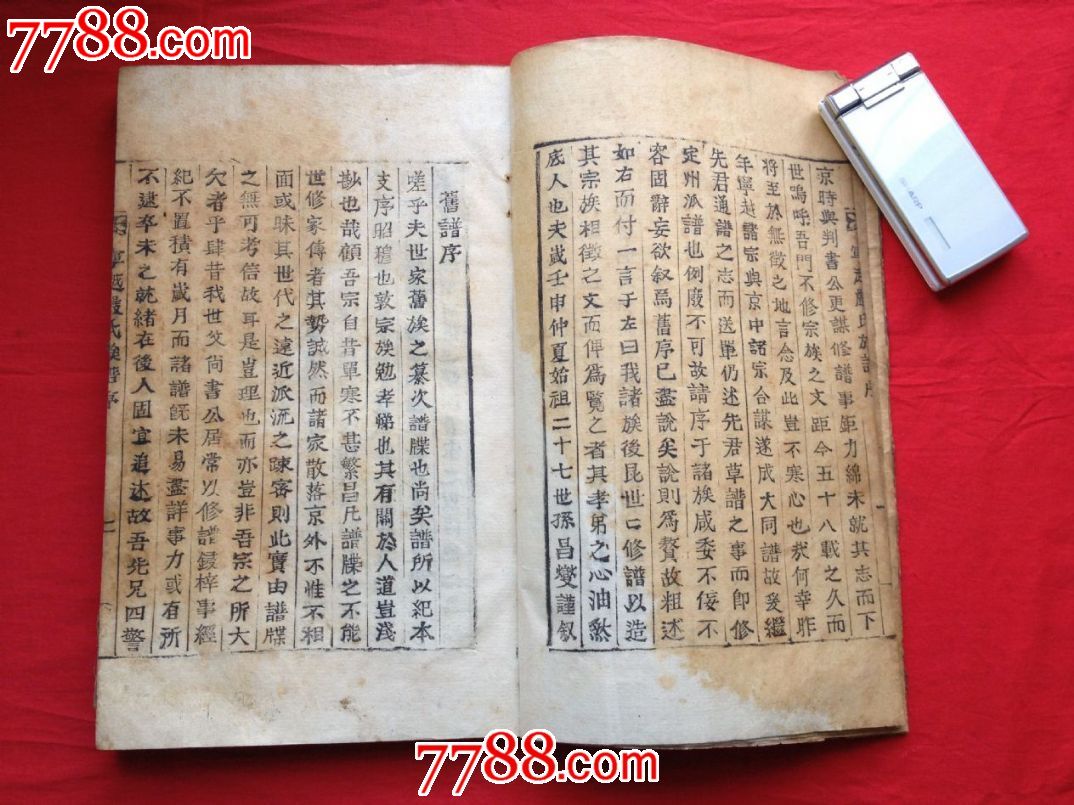 7788.com
寧越嚴氏族譜序
京時與判書公更謀修譜事鉅力綿未就其志而下
世嗚呼吾門不修宗族之文距今五十八載之久而
將至於無徵之地言念及此豈不寒心也哉何幸昨
年寧越諸宗與京中諸宗合謀遂成大同譜故爰繼
先君通譜之志而送單仍述先君草譜之事而即修
定州派譜也例廢不可故請序于諸族咸委不佞不
容固辭妄欲叙焉舊序已盡說矣說則爲贅故粗述
如右而付一言于左曰我諸族後昆世二修譜以造
其宗族相徵之文而俾爲覽之者其孝弟之心油然
底人也夫歲壬申仲夏始祖二十七世孫昌燮謹叙
舊譜序
嗟乎夫世家舊族之纂次譜牒也尚矣譜所以紀本
支序昭穆也敦宗族勉孝悌也其有關於人道豈淺
尠也哉顧吾宗自昔單寒不甚繁昌凡譜牒之不能
世修家傳者其勢誠然而諸家散落京外不惟不相
面或昧其世代之遠近派流之疎密則此實由譜牒
之無可考信故耳是豈理也而亦豈非吾宗之所大
欠者乎肆昔我世父尚書公居常以修譜鋟梓事經
紀不置積有歲月而諸譜旣未易盡詳事力或有所
不逮卒未之就緒在後人固宜追述故吾死兄四警
寧越嚴氏族譜序
SHARP
7788.com
7788.com